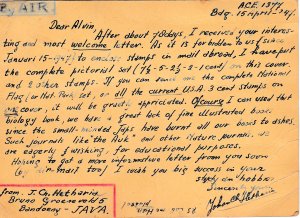 BY AIR
ACE 1379
Bdg. 15 April '47.
Dear Alvin,
After about 78 days, I received your interes-
ting and most welcome letter. As it is forbidden to us (since
January 15-1947) to enclose stamps in mail abroad, I have put
the complete pictorial set (7½-5-2½-2-1 cent) on this cover
and 2 other stamps. If you can send me the complete National
Flag, or Nat. Park Set, or all the current U.S.A. 3 cent stamps on
cover, it will be greatly appriciated. Of course I can used that
biology book, we have a great lack of fine illustrated basic
since the small minded Japs have burnt all our books to ashes.
Such journals like the and other Nature journals. We
are eagerly wishing, for educational purposes.
Hoping to get a more informative letter from you soon
(by air mail too) I wish you big success in your
study in hobbie.
Sincerely
from: J. Ch. Hetharia
Bruno Groenevold 5
Bandoeng - JAVA.